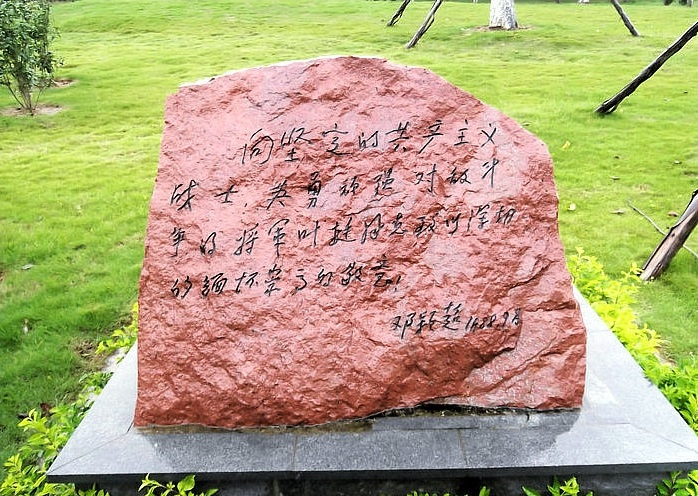 向坚定的共产主义
战士，英勇顽强对敌斗
争的将军叶挺同志致以深切
的缅怀崇高的敬意！
邓颖超1988.9月